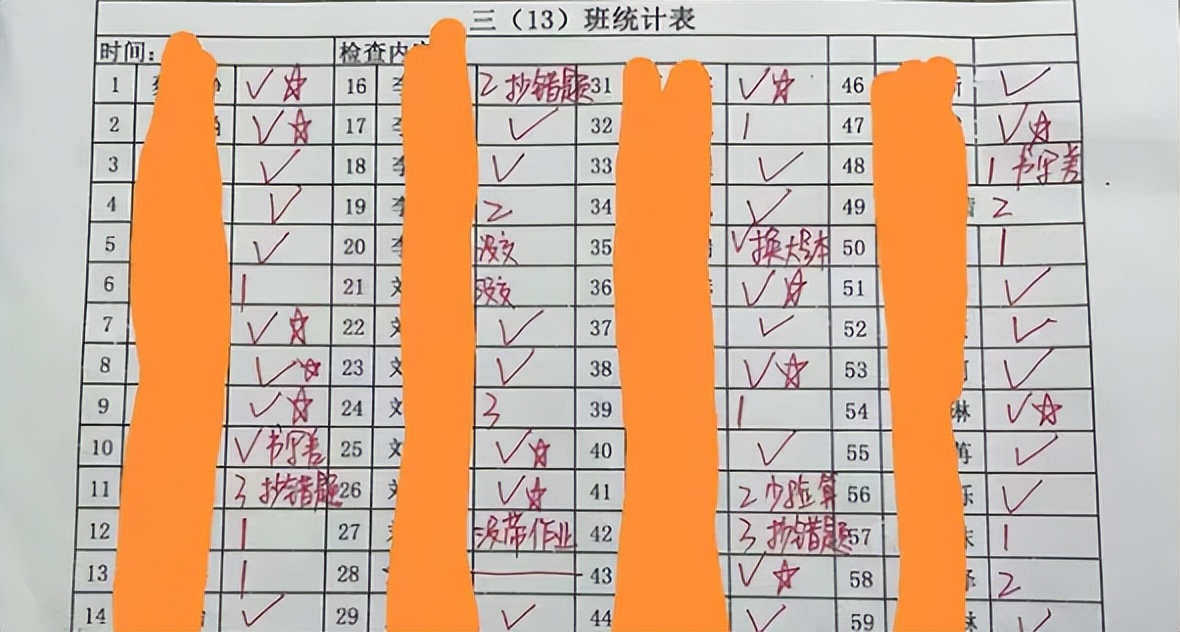 三（13）班统计表
时间： 检查内
1 ✓☆ 16 李 2 抄错题 31 ✓☆ 46 ✓
2 ✓☆ 17 李 ✓ 32 1 47 ✓☆
3 ✓ 18 李 ✓ 33 ✓ 48 1 书写差
4 ✓ 19 李 2 34 ✓ 49 2
5 ✓ 20 李 没交 35 ✓换大号本 50 1
6 1 21 刘 没交 36 ✓☆ 51 ✓
7 ✓☆ 22 刘 ✓ 37 ✓ 52 ✓
8 ✓☆ 23 刘 ✓ 38 ✓☆ 53 ✓
9 ✓☆ 24 刘 3 39 1 54 琳 ✓☆
10 ✓书写差 25 刘 ✓☆ 40 ✓ 55 ✓
11 3 抄错题 26 刘 ✓☆ 41 2 少验算 56 ✓
12 1 27 没带作业 42 3 抄错题 57 1
13 1 28 43 ✓☆ 58 2
14 ✓ 29 ✓ 44 ✓ 59 ✓